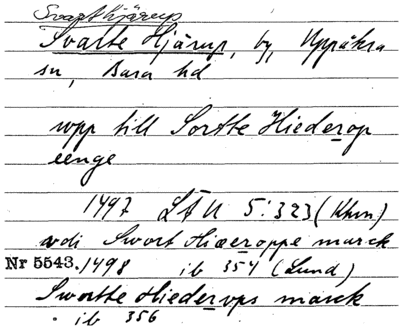 Svarthjärup
Svarte Hjärup, by, Uppåkra
sn, Bara hd
wpp till Sortte Hiederop
eenge
1497 LÄU 5:323 (Khvn)
vdi Swort Hiæeroppe marck
Nr 5543. 1498 ib 354 (Lund)
Swortte Hiederops marck
ib 356